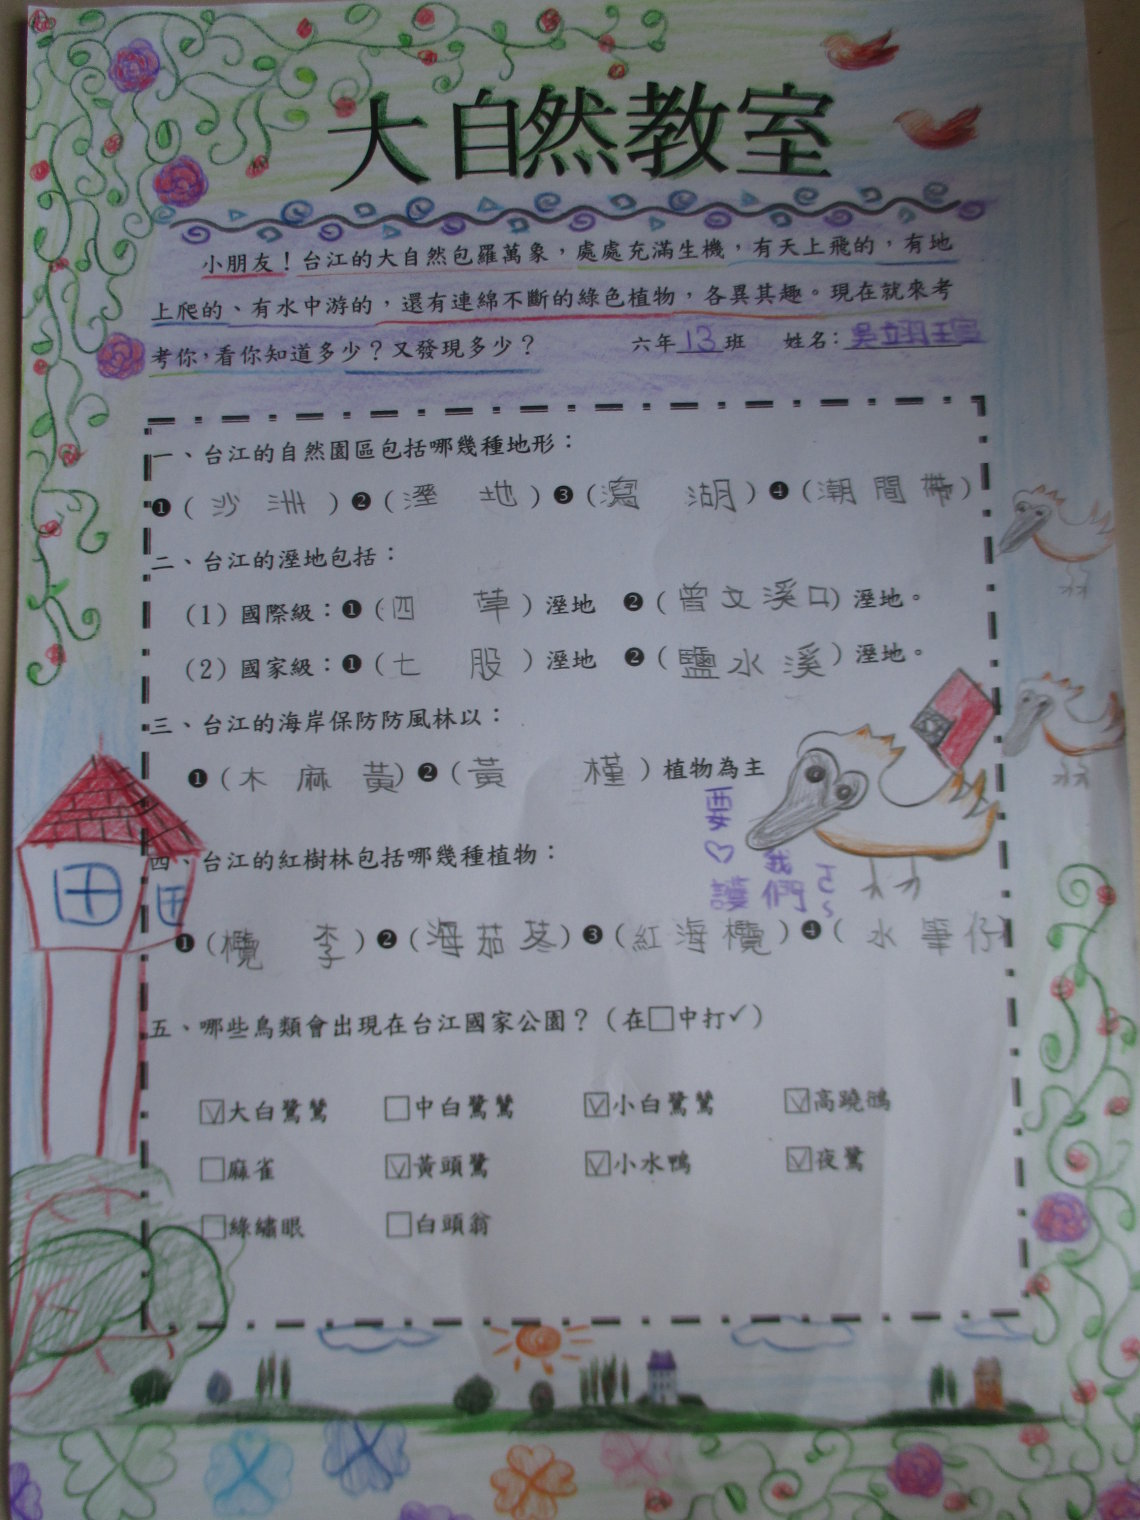 大自然教室
小朋友！台江的大自然包羅萬象，處處充滿生機，有天上飛的，有地
上爬的、有水中游的，還有連綿不斷的綠色植物，各異其趣。現在就來考
考你，看你知道多少？又發現多少？ 六年13班 姓名：吳翊瑄
一、台江的自然園區包括哪幾種地形：
❶（沙洲）❷（溼地）❸（瀉湖）❹（潮間帶）
二、台江的溼地包括：
（1）國際級：❶（四草）溼地 ❷（曾文溪口）溼地。
（2）國家級：❶（七股）溼地 ❷（鹽水溪）溼地。
三、台江的海岸保防防風林以：
❶（木麻黃）❷（黃槿）植物為主
要♡護
我們
四、台江的紅樹林包括哪幾種植物：
❶（欖李）❷（海茄苳）❸（紅海欖）❹（水筆仔）
五、哪些鳥類會出現在台江國家公園？（在□中打✓）
☑大白鷺鷥 □中白鷺鷥 ☑小白鷺鷥 ☑高蹺鴴
□麻雀 ☑黃頭鷺 ☑小水鴨 ☑夜鷺
□綠繡眼 □白頭翁